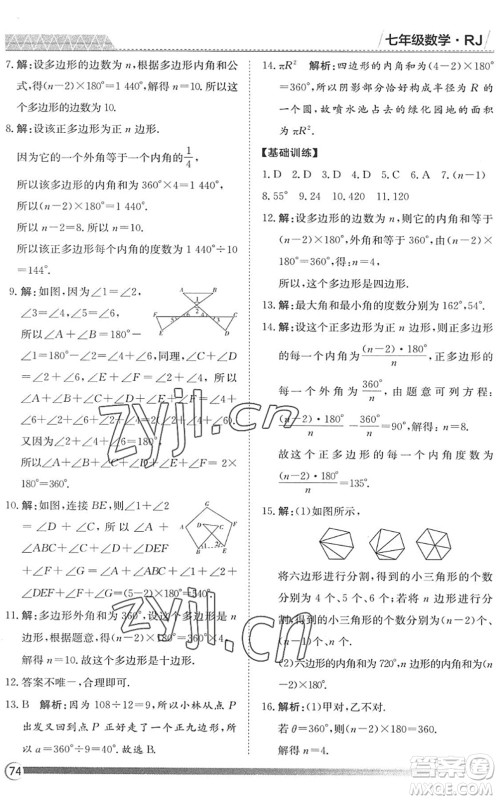 七年级数学·RJ
7. 解：设多边形的边数为 n，根据多边形内角和公
式，得(n－2)×180°＝1 440°. 解得 n＝10. 所以这
个多边形的边数为 10.
8. 解：设该正多边形为正 n 边形.
因为它的一个外角等于一个内角的1/4，
所以该正多边形的内角和为 360°×4＝1 440°.
所以(n－2)×180°＝1 440°. 解得 n＝10.
所以该正多边形每个内角的度数为 1 440°÷10
＝144°.
9. 解：如图，因为∠1＝∠2，
∠3＝∠4，∠5＝∠6，
所以∠A＋∠B＝180°－
∠1＝180°－∠2＝∠4＋∠6，同理，∠C＋∠D
＝∠2＋∠6，∠E＋∠F＝∠2＋∠4，所以
∠A＋∠B＋∠C＋∠D＋∠E＋∠F＝∠4＋
∠6＋∠2＋∠6＋∠2＋∠4＝2(∠2＋∠4＋∠6).
又因为∠2＋∠4＋∠6＝180°，
所以∠A＋∠B＋∠C＋∠D＋∠E＋∠F
＝360°.
10. 解：如图，连接 BE，则∠1＋
∠2＝∠C＋∠D. 所以∠A
＋∠ABC＋∠C＋∠D＋
∠DEF＋∠F＋∠G＝∠A＋∠ABC＋∠1＋
∠2＋∠DEF＋∠F＋∠G＝∠A＋∠ABE＋
∠BEF＋∠F＋∠G＝(5－2)×180°＝540°.
11. 解：多边形外角和为 360°. 设这个多边形是 n
边形，根据题意，得(n－2)×180°＝360°×4.
解得 n＝10. 故这个多边形是十边形.
12. 答案不唯一，合理即可.
13. B 解析：因为 108÷12＝9，所以小林从点 P
出发又回到点 P 正好走了一个正九边形，所
以 a＝360°÷9＝40°. 故选 B.
14. πR². 解析：四边形的内角和为(4－2)×180°
＝360°，所以阴影部分恰好构成半径为 R 的
一个圆，故喷水池占去的绿化园地的面积
为 πR².
【基础训练】
1. D 2. D 3. C 4. A 5. D 6. A 7. (n－1)
8. 55° 9. 24 10. 45° 11. 120
12. 解：设多边形的边数为 n，则它的内角和等于
(n－2)·180°. 由题意得，(n－2)×180°－
180°＝360°，解得 n＝5.
所以这个多边形的边数为 5.
13. 解：最大角和最小角的度数分别为 162°，54°.
14. 解：设这个正多边形为正 n 边形，则正多边形
的一个内角为(n－2)·180°/n，正多边形的
一个外角为360°/n，由题意可列方程：
(n－2)·180°/n－360°/n＝90°. 解得：n＝8.
所以这个正多边形的每一个内角的度数
为(n－2)×180°/n＝135°.
15. 解：(1)如图所示.
将六边形进行分割，得到的小三角形的个数
分别为 4 个、5 个、6 个. 将 n 边形按照上述
(n－1)个、n 个.
(2)六边形的内角和为 720°，n 边形的内角和
为(n－2)×180°.
16. 解析：(1)甲对，乙不对.
若 θ＝360°，则(n－2)·180＝360，
解得 n＝4.
74
zyjl.cn
zyjl.cn
答案圈
MXQE.COM